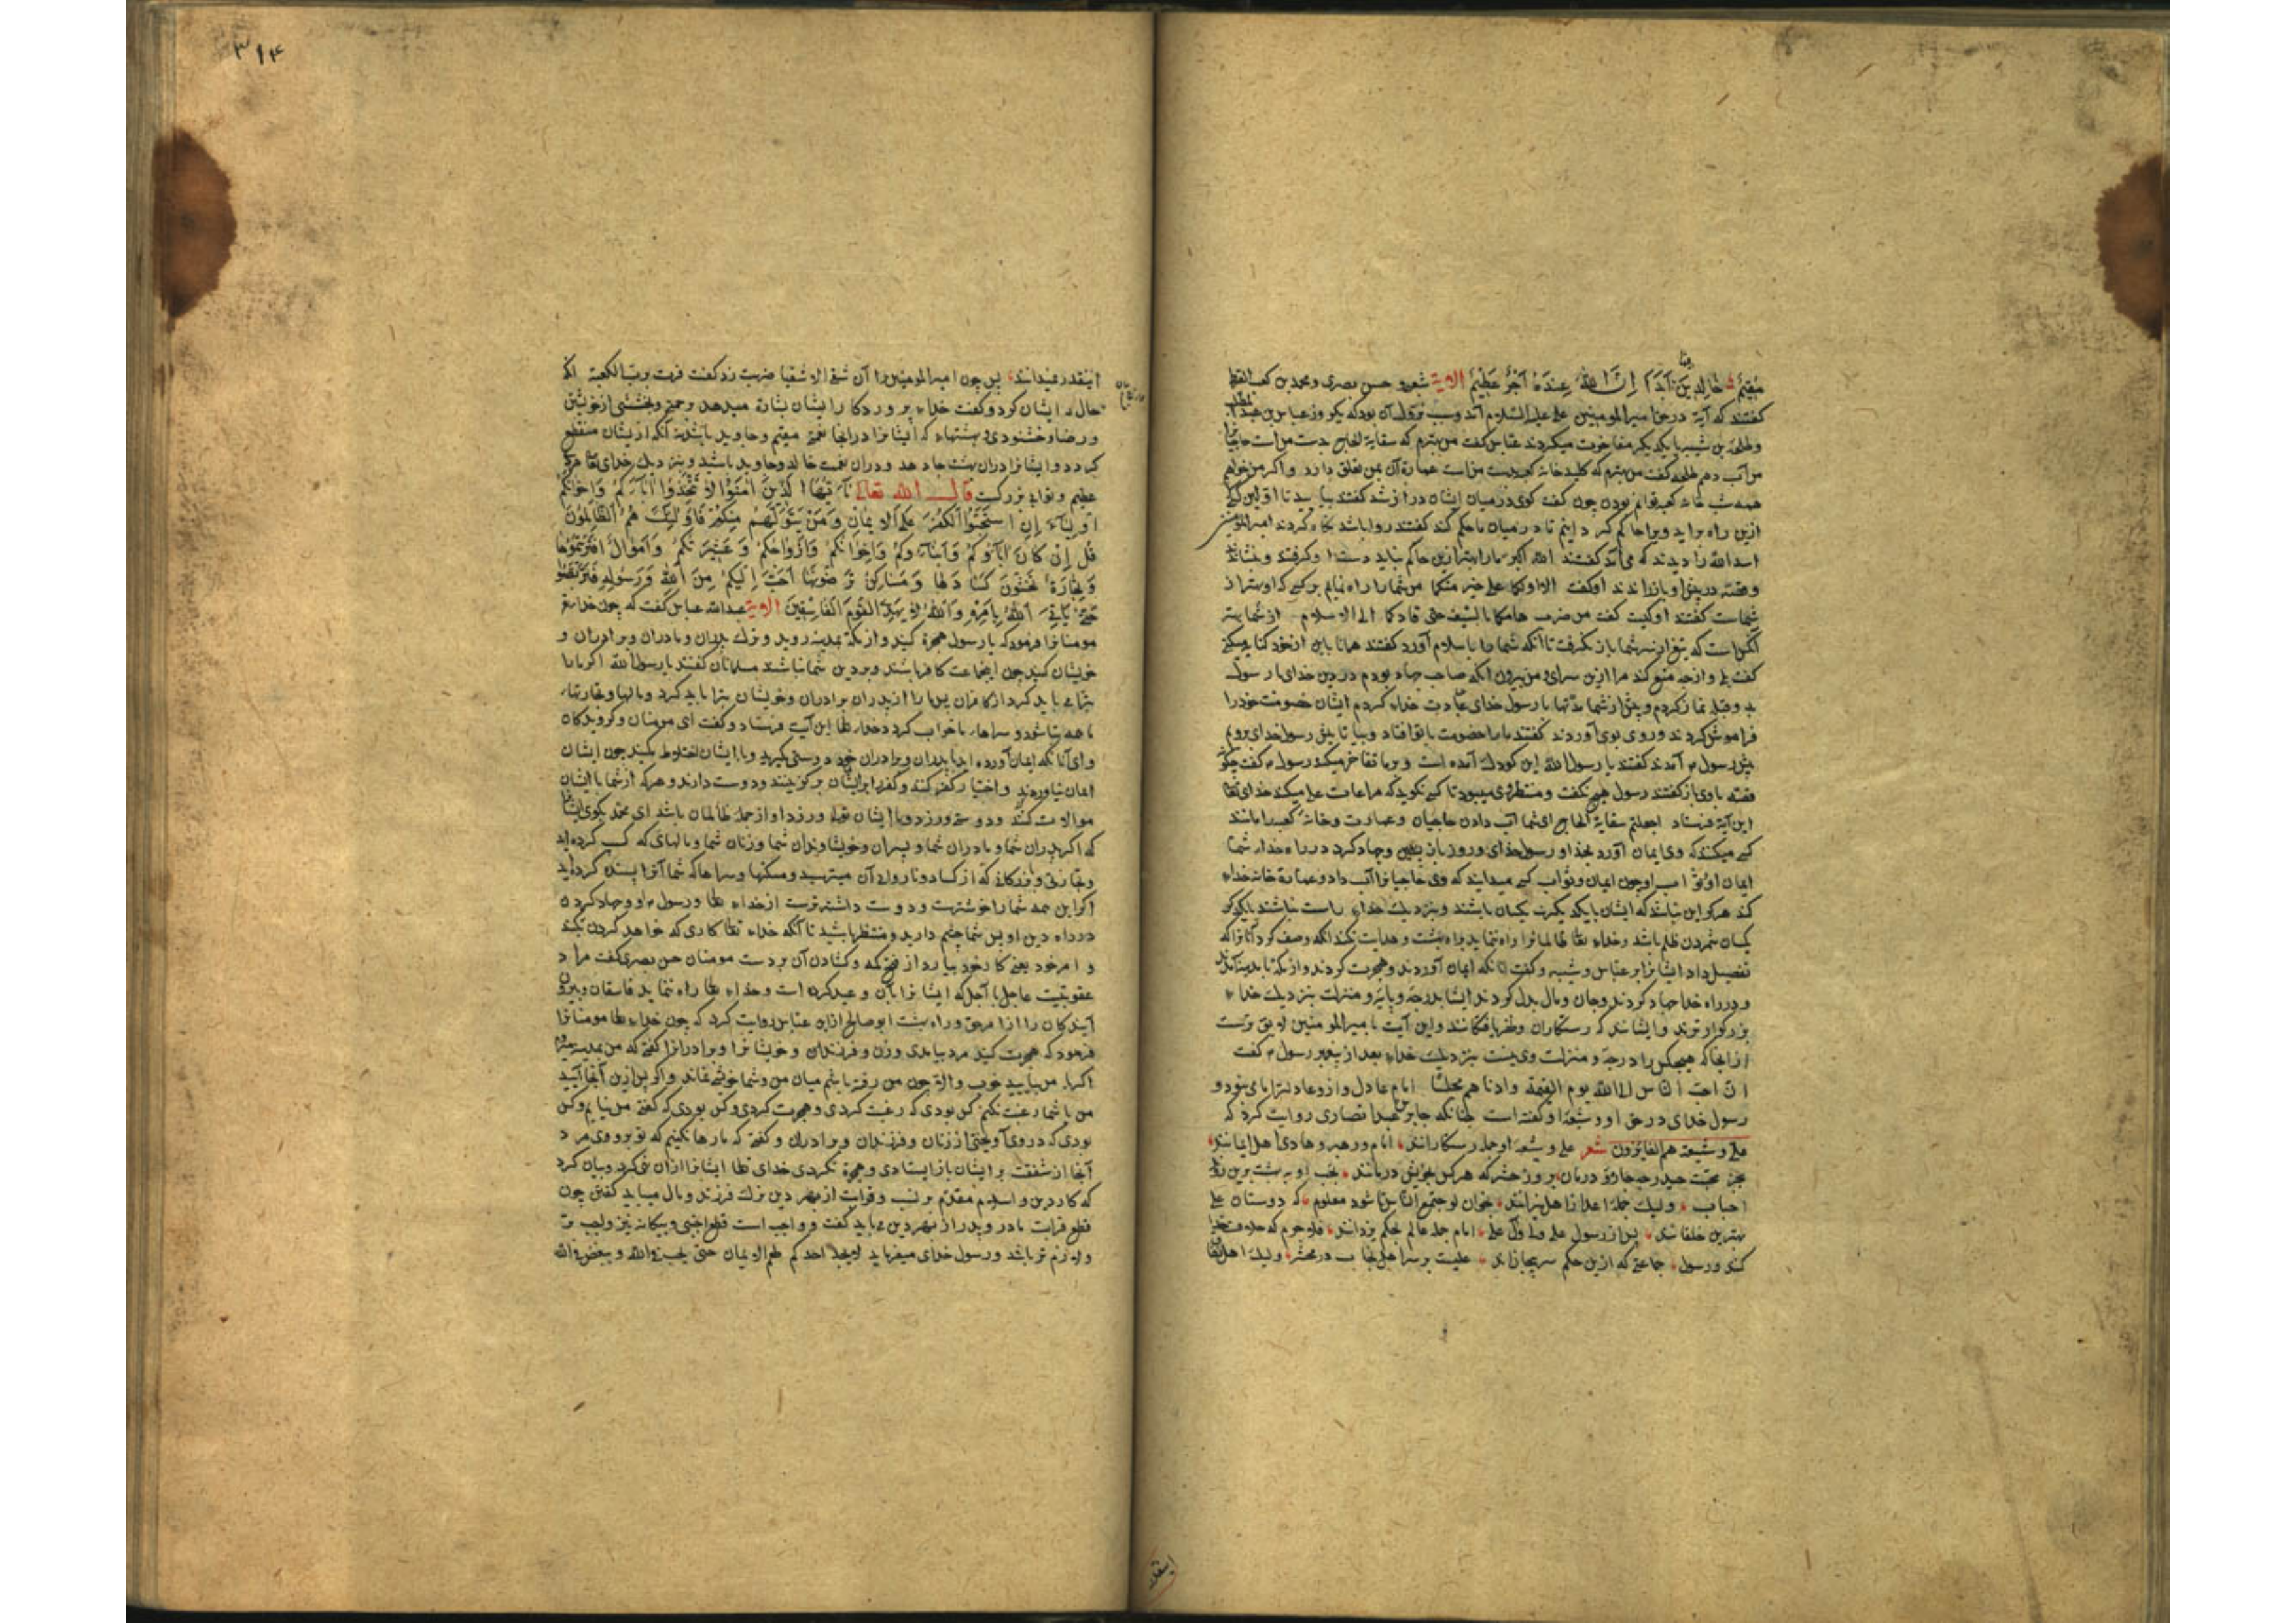 مُقِيمٌ خَالِدِينَ فِيهَا أَبَدًا إِنَّ اللَّهَ عِنْدَهُ أَجْرٌ عَظِيمٌ الآیة شعبی و حسن بصری و محمد بن کعب القرظی
گفتند که آیه در حق امیر المومنین علی علیه السلام آمد و سبب نزول آن بود که یکروز عباس بن عبدالمطلب
و طلحة بن شیبه با یکدیگر مفاخرت میکردند عباس گفت من بهترم که سقایة الحاج بدست من است حاجیانرا
من آب دهم طلحه گفت من بهترم که کلید خانه کعبه بدست من است عمارة آن بمن تعلق دارد و اگر من خواهم
همه شب خانه کعبه توانم بودن چون گفت کوی در میان ایشان دراز شد گفتند بیایید تا اولین کسی
ازین راه براید ویرا حاکم کردانیم تا در میان ما حکم کند گفتند روا باشد نگاه کردند امیر المومنین
اسد الله را دیدند که می آمد گفتند الله اکبر ما را بهتر ازین حاکم نباید دست او گرفتند و بنشاندند
و قصه در پیش او باز راندند او گفت الا ادلکما علی خیر منکما من شما را راه نمایم بر کسی که او بهتر از
شماست گفتند او کیست گفت من ضرب هامکما بالسیف حتی قادکما الی الاسلام از شما بهتر
آنکس است که تیغ از سر شما باز نگرفت تا آنکه شما را باسلام آورد گفتند همانا باین از خود کنایه میکنی
گفت بلی و از چه منع کند مرا ازین سرای و من بیرون آنکه صاحب جهاد بودم در دین خدای با رسول
بد و قبله نماز کردم و پیش از شما مدتها با رسول خدای عبادت خداء کردم ایشان خصومت خود را
فراموش کردند و روی بوی آوردند گفتند ما را خصومت با تو افتاد و بیا تا پیش رسول خدای برویم
پیش رسول م آمدند گفتند یا رسول الله این کودک آمده است و بر ما تفاخر میکند رسول م گفت چگونه
قصه با وی باز گفتند رسول هیچ نگفت و منتظر وحی میبود تا کسی نگوید که مراعات علی میکند خدای تعالی
این آیة فرستاد اجعلتم سقایة الحاج ای شما آب دادن حاجیان و عمارت و خانه کعبه را مانند
کسی میکنید که وی ایمان آورد بخدا و رسول خدای و روز باز پسین و جهاد کرد در راه خداء شما
کند هرگز این نباشد که ایشان با یکدیگر یکسان باشند و بنزدیک خداء راست نباشند با یکدیگر
یکسان شمردن ظلم باشد و خداء تعالی ظالمانرا راه ننماید براه بهشت و هدایت نکند آنکه وصف کرد آنانرا که
تفصیل داد ایشانرا بر عباس و شیبه و گفت آنانکه ایمان آوردند و هجرت کردند و از مکه تا بمدینه آمدند
و در راه خدا جهاد کردند و جان و مال بدل کردند ایشا بدرجه و پایه و منزلت بنزدیک خداء
بزرگوار ترند و ایشانند که رستگاران و ظفر یافتگانند و این آیت بامیر المومنین لایق ترست
از انجا که هیچکس را درجه و منزلت وی نیست بنزدیک خداء بعد از پیغمبر رسول م گفت
ان احب الناس الی الله یوم القیمة و ادناهم مجلسا امام عادل
رسول خدای در حق او و شیعه او گفته است چنانکه جابر بن عبد انصاری روایت کرد که
علی و شیعته هم الفائزون شعر علی و شیعه او جمله رستگارانند امام و رهبر و هادی اهل ایمانند
بجز محبت حیدر چه چاره
احباب ولیک جمله اعدا ز اهل نیرانند بخوان تو جمع الناس تا شود معلوم که دوستان علی
بهترین خلقانند پس از رسول علی و اول علی امام جمله عالم بحکم یزدانند
کند و رسول جماعتی که ازین حکم سر بپیچانند علیست بر سر اهل نجات در محشر
اینقدر
۳۱۴
اینقدر نمیدانند پس چون امیر المومنین را آن شقی الاشقیا ضربت زد گفت فزت برب الکعبة آنکه
حال ایشان کرد و گفت خداء پروردگار ایشان بشارة میدهد برحمتی و بخششی از خویشتن
و رضا و خشنودی و بهشتهاء که ایشانرا در انجا نعمتی مقیم و جاوید باشد نه آنکه از ایشان منقطع
گردد و ایشانرا دران بهشت جا دهد و دران نعمت خالد و جاوید باشند و بنزدیک خدای تعالی مزد
عظیم و ثوابی بزرگست قال الله تعالی يَا أَيُّهَا الَّذِينَ آمَنُوا لَا تَتَّخِذُوا آبَاءَكُمْ وَإِخْوَانَكُمْ
أَوْلِيَاءَ إِنِ اسْتَحَبُّوا الْكُفْرَ عَلَى الْإِيمَانِ وَمَنْ يَتَوَلَّهُمْ مِنْكُمْ فَأُولَئِكَ هُمُ الظَّالِمُونَ
قُلْ إِنْ كَانَ آبَاؤُكُمْ وَأَبْنَاؤُكُمْ وَإِخْوَانُكُمْ وَأَزْوَاجُكُمْ وَعَشِيرَتُكُمْ وَأَمْوَالٌ اقْتَرَفْتُمُوهَا
وَتِجَارَةٌ تَخْشَوْنَ كَسَادَهَا وَمَسَاكِنُ تَرْضَوْنَهَا أَحَبَّ إِلَيْكُمْ مِنَ اللَّهِ وَرَسُولِهِ فَتَرَبَّصُوا
حَتَّى يَأْتِيَ اللَّهُ بِأَمْرِهِ وَاللَّهُ لَا يَهْدِي الْقَوْمَ الْفَاسِقِينَ الآیة عبدالله عباس گفت که چون خداء تعالی
مومنانرا فرمود که با رسول هجرة کنید و از مکه بمدینه روید و ترک پدران و مادران و برادران و
خویشان کنید چون ایجماعت کافر باشند و بر دین شما نباشند مسلمانان گفتند یا رسول الله اگر ما را
تبرا می باید کرد از کافران پس ما را از پدران برادران و خویشان تبرا باید کرد و مالها و تجارتهاء
ما همه تباه شود و سراهاء ما خراب گردد خداء تعالی این آیت فرستاد و گفت ای مومنان و گرویدگان
و ای آنانکه ایمان آورده اید با پدران و برادران خود دوستی مگیرید و با ایشان اختلاط مکنید چون ایشان
ایمان نیاوردند و اختیار کفر کنند و کفر را بر ایمان برگزینند و دوست دارند و هرکه از شما با ایشان
موالات کند و دوستی ورزد و با ایشان تولا ورزد او از جمله ظالمان باشد ای محمد بگوی ایشانرا
که اگر پدران شما و مادران شما و پسران و خویشاوندان شما و زنان شما و مالهای که کسب کرده اید
و تجارتی و بازرگانی که از کساد و ناروایی آن میترسید و مسکنها و سراها که شما آنرا پسند کرده اید
اگر این همه شما را خوشترست و دوست داشته ترست از خداء تعالی و رسول م او و جهاد کردن
در راه دین او پس شما چشم دارید و منتظر باشید تا آنکه خداء تعالی کاری که خواهد کردن بکند
و امر خود یعنی کار خود بیارد از فتح مکه و گشادن آن بر دست مومنان حسن بصری گفت مراد
عقوبتیست عاجل یا آجل که ایشانرا بآن وعید کرده است و خداء تعالی راه ننماید فاسقان و بیرون
آیندگان را از امر حق و راه بهشت ابو صالح از ابن عباس روایت کرد که چون خداء تعالی مومنانرا
فرمود که هجرت کنید مرد بیامدی و زن و فرزندان و خویشانرا و برادرانرا گفتی که من بمدینه میروم
اگر با من بیایید خوب والا چون من رفته باشم میان من و شما خویشی نماند و اگر پس ازین آنجا آیید
من با شما رغبت نکنم کس بودی که رغبت کردی و هجرت کردی و کس بودی که گفتی من نیایم و کس
بودی که در وی آویختی از زنان و فرزندان و برادران و گفتی که ما رها نکنیم که تو بروی مرد
آنجا از شفقت بر ایشان باز ایستادی و هجرة نکردی خدای تعالی ایشانرا ازان نهی کرد و بیان کرد
که کار دین و اسلام مقدم بر نسب و قرابت از بهر دین ترک فرزند و مال میباید گفتن چون
قطع قرابت مادر و پدر از بهر دین می باید گفت و واجب است قطع اجنبی و بیگانه نیز واجب تر
و لازم تر باشد و رسول خدای میفرماید لا یجد احدکم طعم الایمان حتی یحب فی الله و یبغض فی الله